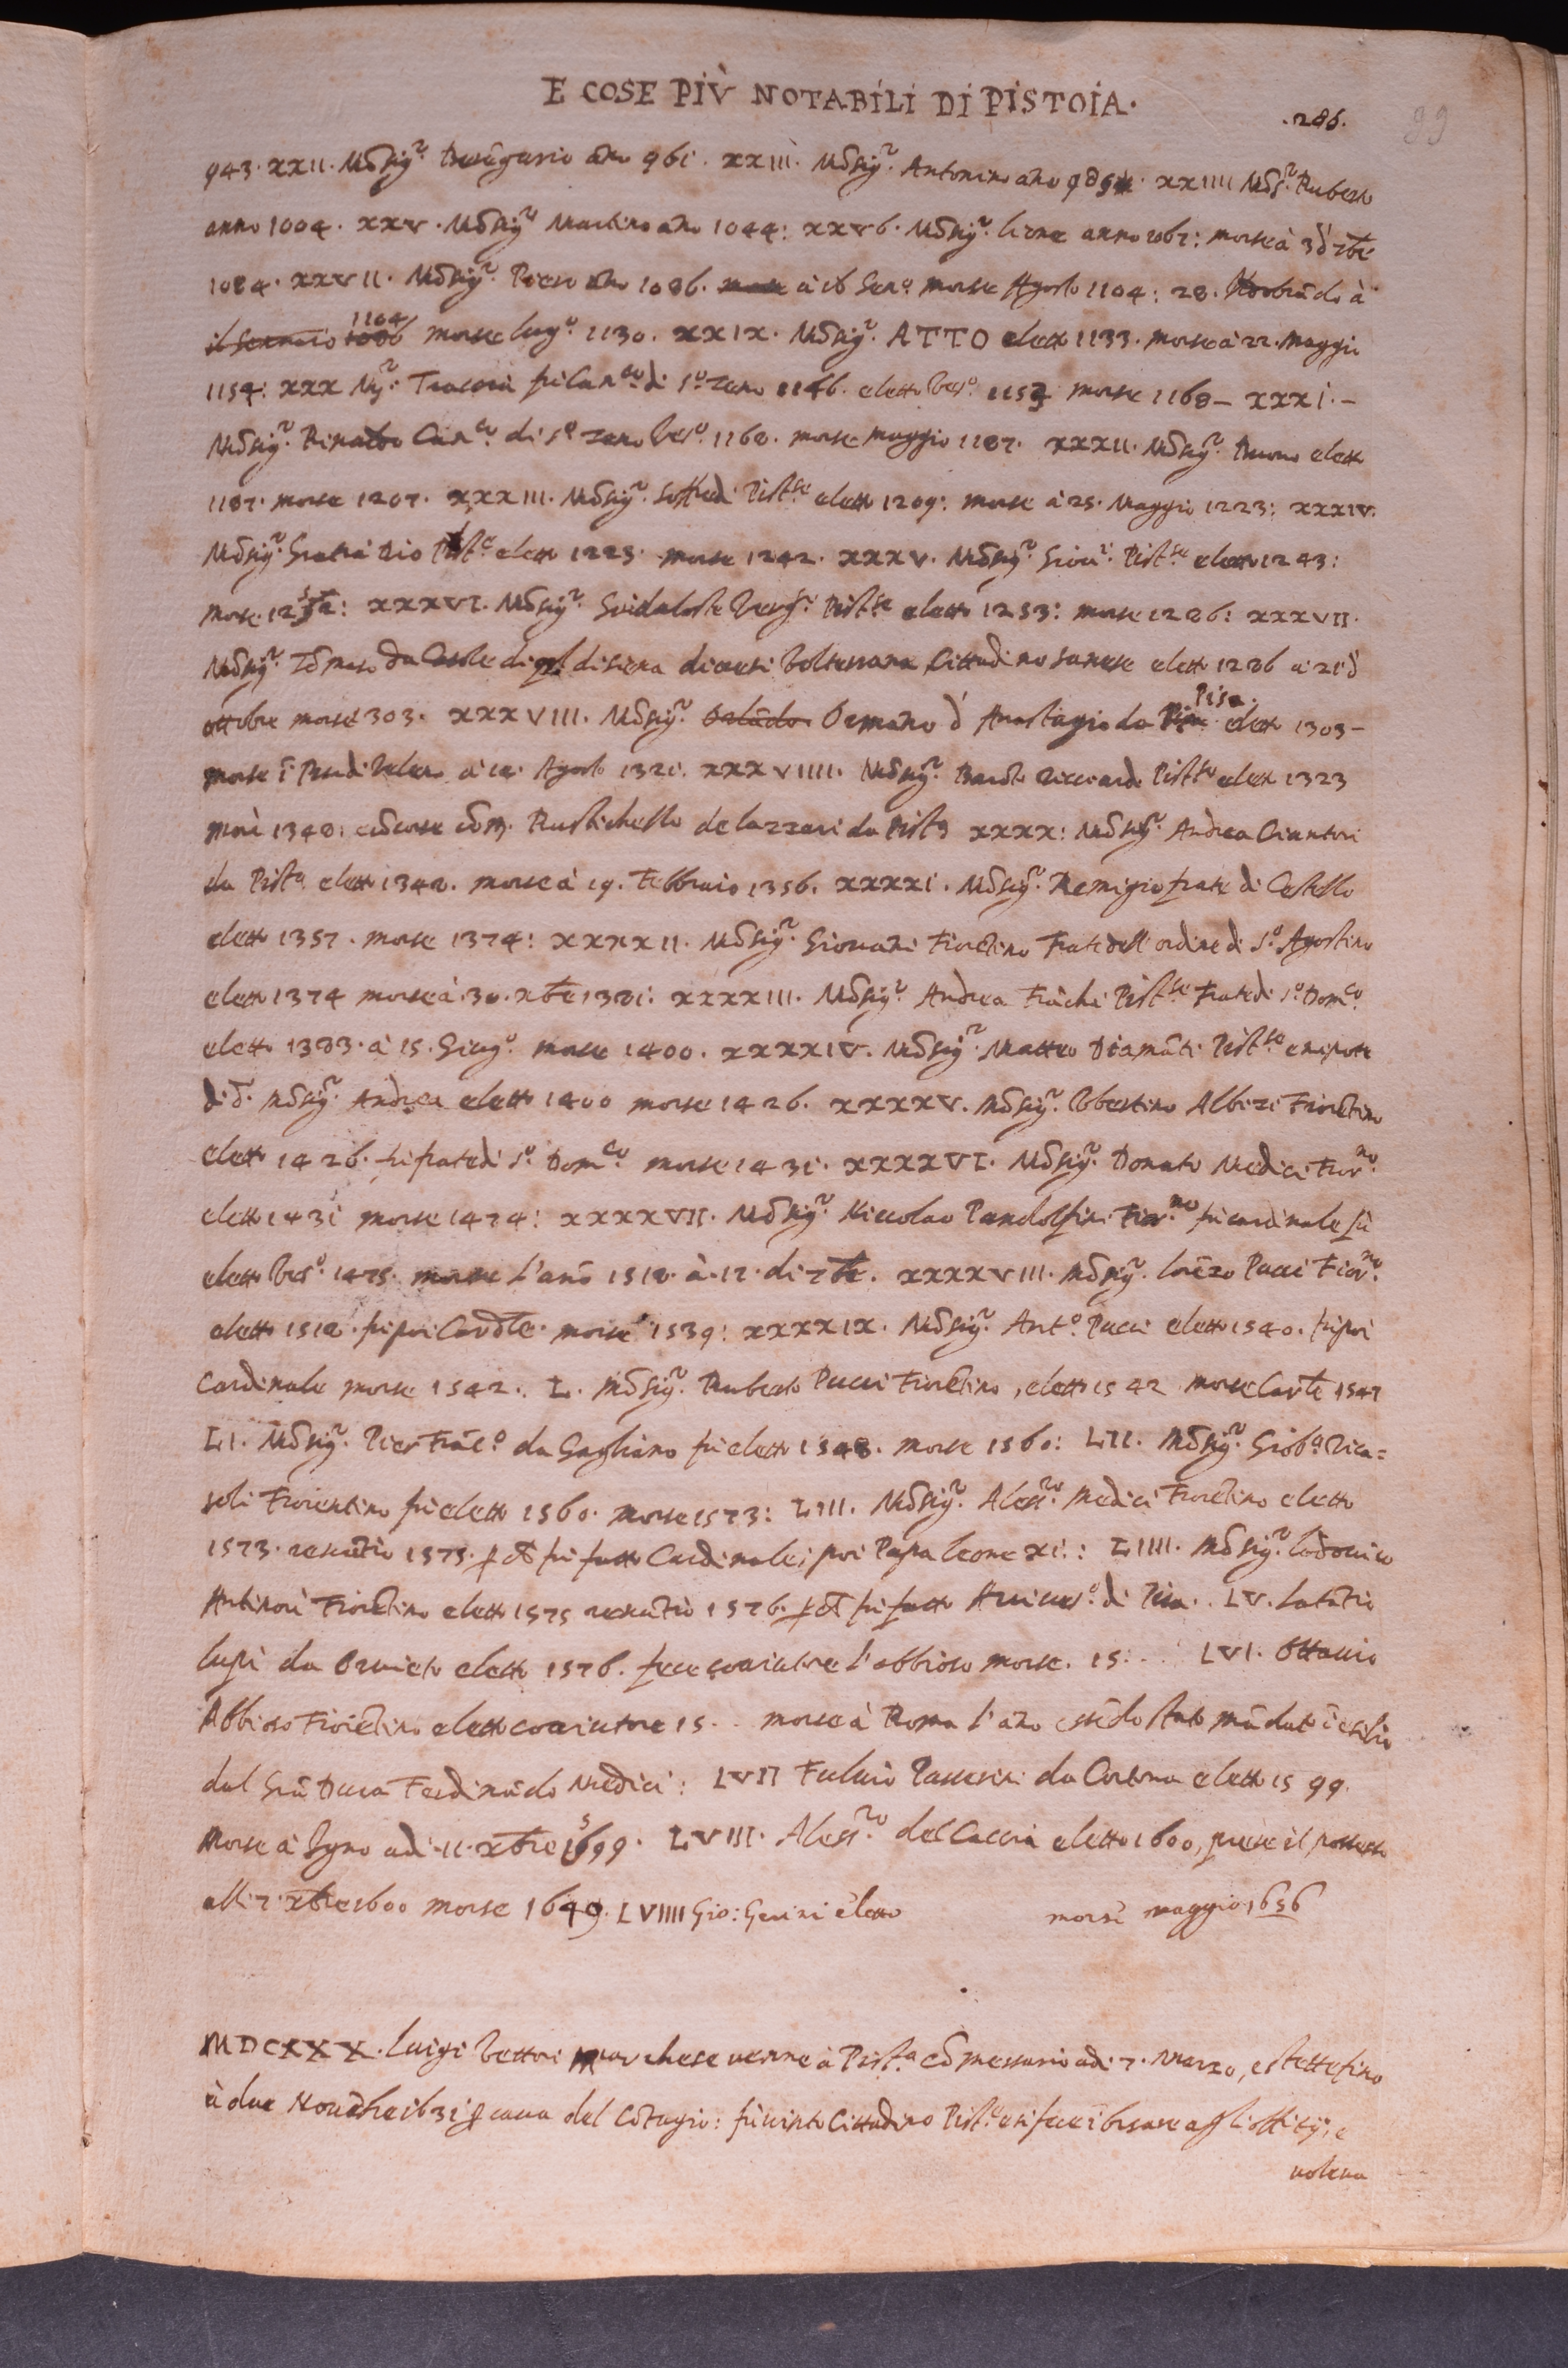 E COSE PIÙ NOTABILI DI PISTOIA.
.286. 99
943. XXII. Mõsigr. Berẽgario año 961. XXIII. Mõsigr. Antonino año 985. XXIIII Mõsr. Ruberto
anno 1004. XXV. Mõsigr. Martino año 1044: XXV6. Mõsigr. leone anno 1067: morse à 3 d 7bre
1084. XXVII. Mõsigr. Piero año 1086. morse à 16 Geno. morse Agosto 1104: 28. à
il Gennaio 1086 1104 morse lugo. 1130. XXIX. Mõsigr. ATTO eletto 1133. morse à 22. Maggio
1154: XXX Mgr. Tracia fù Canco. di So. Zeno 1146. eletto Veso. 1153 morse 1168 – XXXI. –
Mõsigr. Rinaldo Canco. di So. Zeno Veso. 1168. morse Maggio 1187. XXXII. Mõsigr. Buono eletto
1187. morse 1207. XXXIII. Mõsigr. Soffredi Pistse eletto 1209: morse à 25. Maggio 1223: XXXIV.
Mõsigr. Gratia Dio Piste. eletto 1223. morse 1242. XXXV. Mõsigr. Giovi. Pistse eletto 1243:
morse. 1252: XXXVI. Mõsigr. Guidaloste Vergi. Pistse eletto 1253: morse 1286: XXXVII.
Mõsigr. Tõmaso da Casole di disiena diocesi Volterrana Cittadino sanese eletto 1286 à 21 d
ottobre morse 303. XXXVIII. Mõsigr. Orlãdo Ormano d Anastagio da Pisa Pisa eletto 1303 –
morse à 12. Agosto 1321. XXXVIIII. Mõsigr. Bardo Ricciardi Pistse eletto 1323
morì 1348: cõcorse cõ M. Rustichello de lazzari da Pista XXXX: Mõsigr. Andrea Ciantori
da Pista eletto 1348. morse à 19. Febbraio 1356. XXXXI. Mõsigr. Remigio frate di Cestello
eletto 1357. morse 1374: XXXXII. Mõsigr. Giovani Fiorẽtino Frate dell'ordine di So. Agostino
eletto 1374 morse à 30. Xbre 1381: XXXXIII. Mõsigr. Andrea Frãchi Pistse Frate di So. Domco.
eletto 1383. à 15. Giugo. morse 1400. XXXXIV. Mõsigr. Matteo Diamãti Pistse e nipote
di d. Mõsigr. Andrea eletto 1400 morse 1426. XXXXV. Mõsigr. Ubertino Albizi Fiorẽtino
eletto 1426. fù frate di So. Domco. morse 1431. XXXXVI. Mõsigr. Donato Medici Fiorno.
eletto 1431 morse 1474: XXXXVII. Mõsigr. Niccolao Pandolfini Fiorno fù cardinale fù
eletto Veso. 1475. morse l'anõ 1518. à. 17. di 7bre. XXXXVIII. Mõsigr. lorẽzo Pucci Fiorno.
eletto 1518. fù poi Cardle. morse 1539: XXXXIX. Mõsigr. Anto. Pucci eletto 1540. fù poi
Cardinale morse 1542. L. Mõsigr. Ruberto Pucci Fiorẽtino, eletto 1542 morse Carle 1547
LI. Mõsigr. Pier Frãco. da Gagliano fù eletto 1548. morse 1560: LII. Mõsigr. Gioba. Rica=
soli Fiorentino fù eletto 1560. morse 1573: LIII. Mõsigr. Alessro. Medici Fiorẽtino eletto
1573. renũtiò 1575. p che fù fatto Cardinale, poi Papa leone XI.: LIIII. Mõsigr. lodovico
Antinori Fiorẽtino eletto 1575 renũtiò 1576. p che fù fatto Arcivso. di Pisa.. LV. Latãtio
lupi da Orvieto eletto 1576. fece coaiutore l'abbioso morse. 15... LVI. Ottavio
Abbioso Fiorẽtino eletto coaiutore 15.. morse à Roma l'año essẽdo stato mãdato ĩ esilio
dal Grã Duca Ferdinãdo Medici: LVII Fulvio Passerini da Cortona eletto 1599.
Morse à adi. 11. Xbre 1599. LVIII. Alessro. del Caccia eletto 1600, prese il possesso
alli 7. Xbre 1600 morse 1649. LVIIII Gio: Gerini eletto morsi maggio 1656
MDCXXX. Luigi Vettori Marchese venne à Pista cõmessario adi 7. Marzo, e stette fino
à due Novẽbre 1631 p causa del Cõtagio: fù vinto Cittadino Pistse e si fece ĩborsare agli offitij, e
voleva